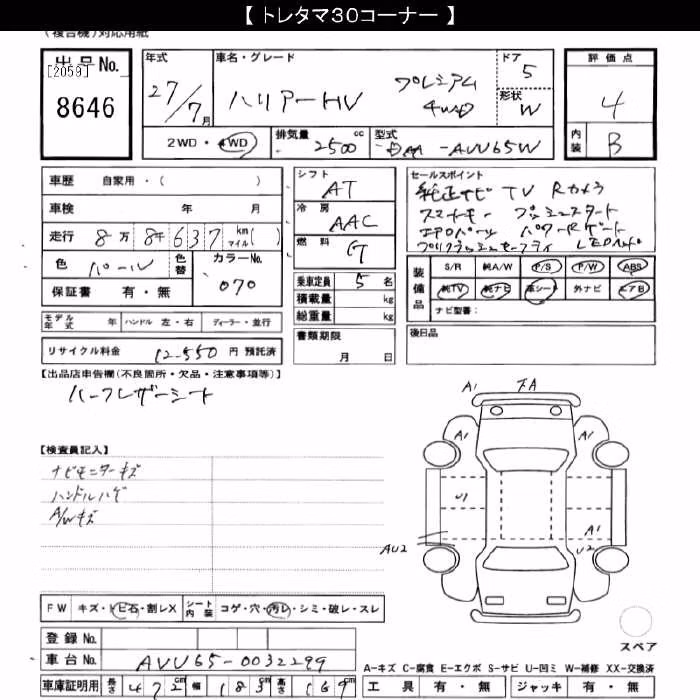 【 トレタマ30コーナー 】
(複合機)対応用紙
出品No.
[2059]
8646
年式
27/7月
車名・グレード
ハリアーHV プレミアム 4WD
ドア
5
形状
W
2WD・4WD
排気量
2500 cc
型式
DAA-AVU65W
評価点
4
内装
B
車歴 自家用・( )
車検 年 月
走行 8万8千637 km マイル( )
色 パール
色替
カラーNo.
070
保証書 有・無
モデル年式 年 ハンドル 左・右 ディーラー・並行
リサイクル料金 12,550 円 預託済
シフト
AT
冷房
AAC
燃料
G
乗車定員 5 名
積載量 kg
総重量 kg
書類期限
月 日
セールスポイント
純正ナビ TV Rカメラ
スマートキー プッシュスタート
エアロパーツ パワーRゲート
プリクラッシュセーフティ LEDヘッド
装備品
S/R 純A/W P/S P/W ABS
純TV 純ナビ 革シート 外ナビ エアB
ナビ型番:
後日品
【出品店申告欄(不良箇所・欠品・注意事項等)】
ハーフレザーシート
【検査員記入】
ナビモニターキズ
ハンドルハゲ
A/Wキズ
A1 下A
A1 A1
U1
A1
AU2 U2
FW キズ・トビ石・割レX シート内装 コゲ・穴・汚レ・シミ・破レ・スレ
スペア
登録No.
車台No. AVU65-0032299
A−キズ C−腐食 E−エクボ S−サビ U−凹ミ W−補修 XX−交換済
車庫証明用 長さ 472cm 幅 183cm 高さ 169cm
工具 有・無 ジャッキ 有・無